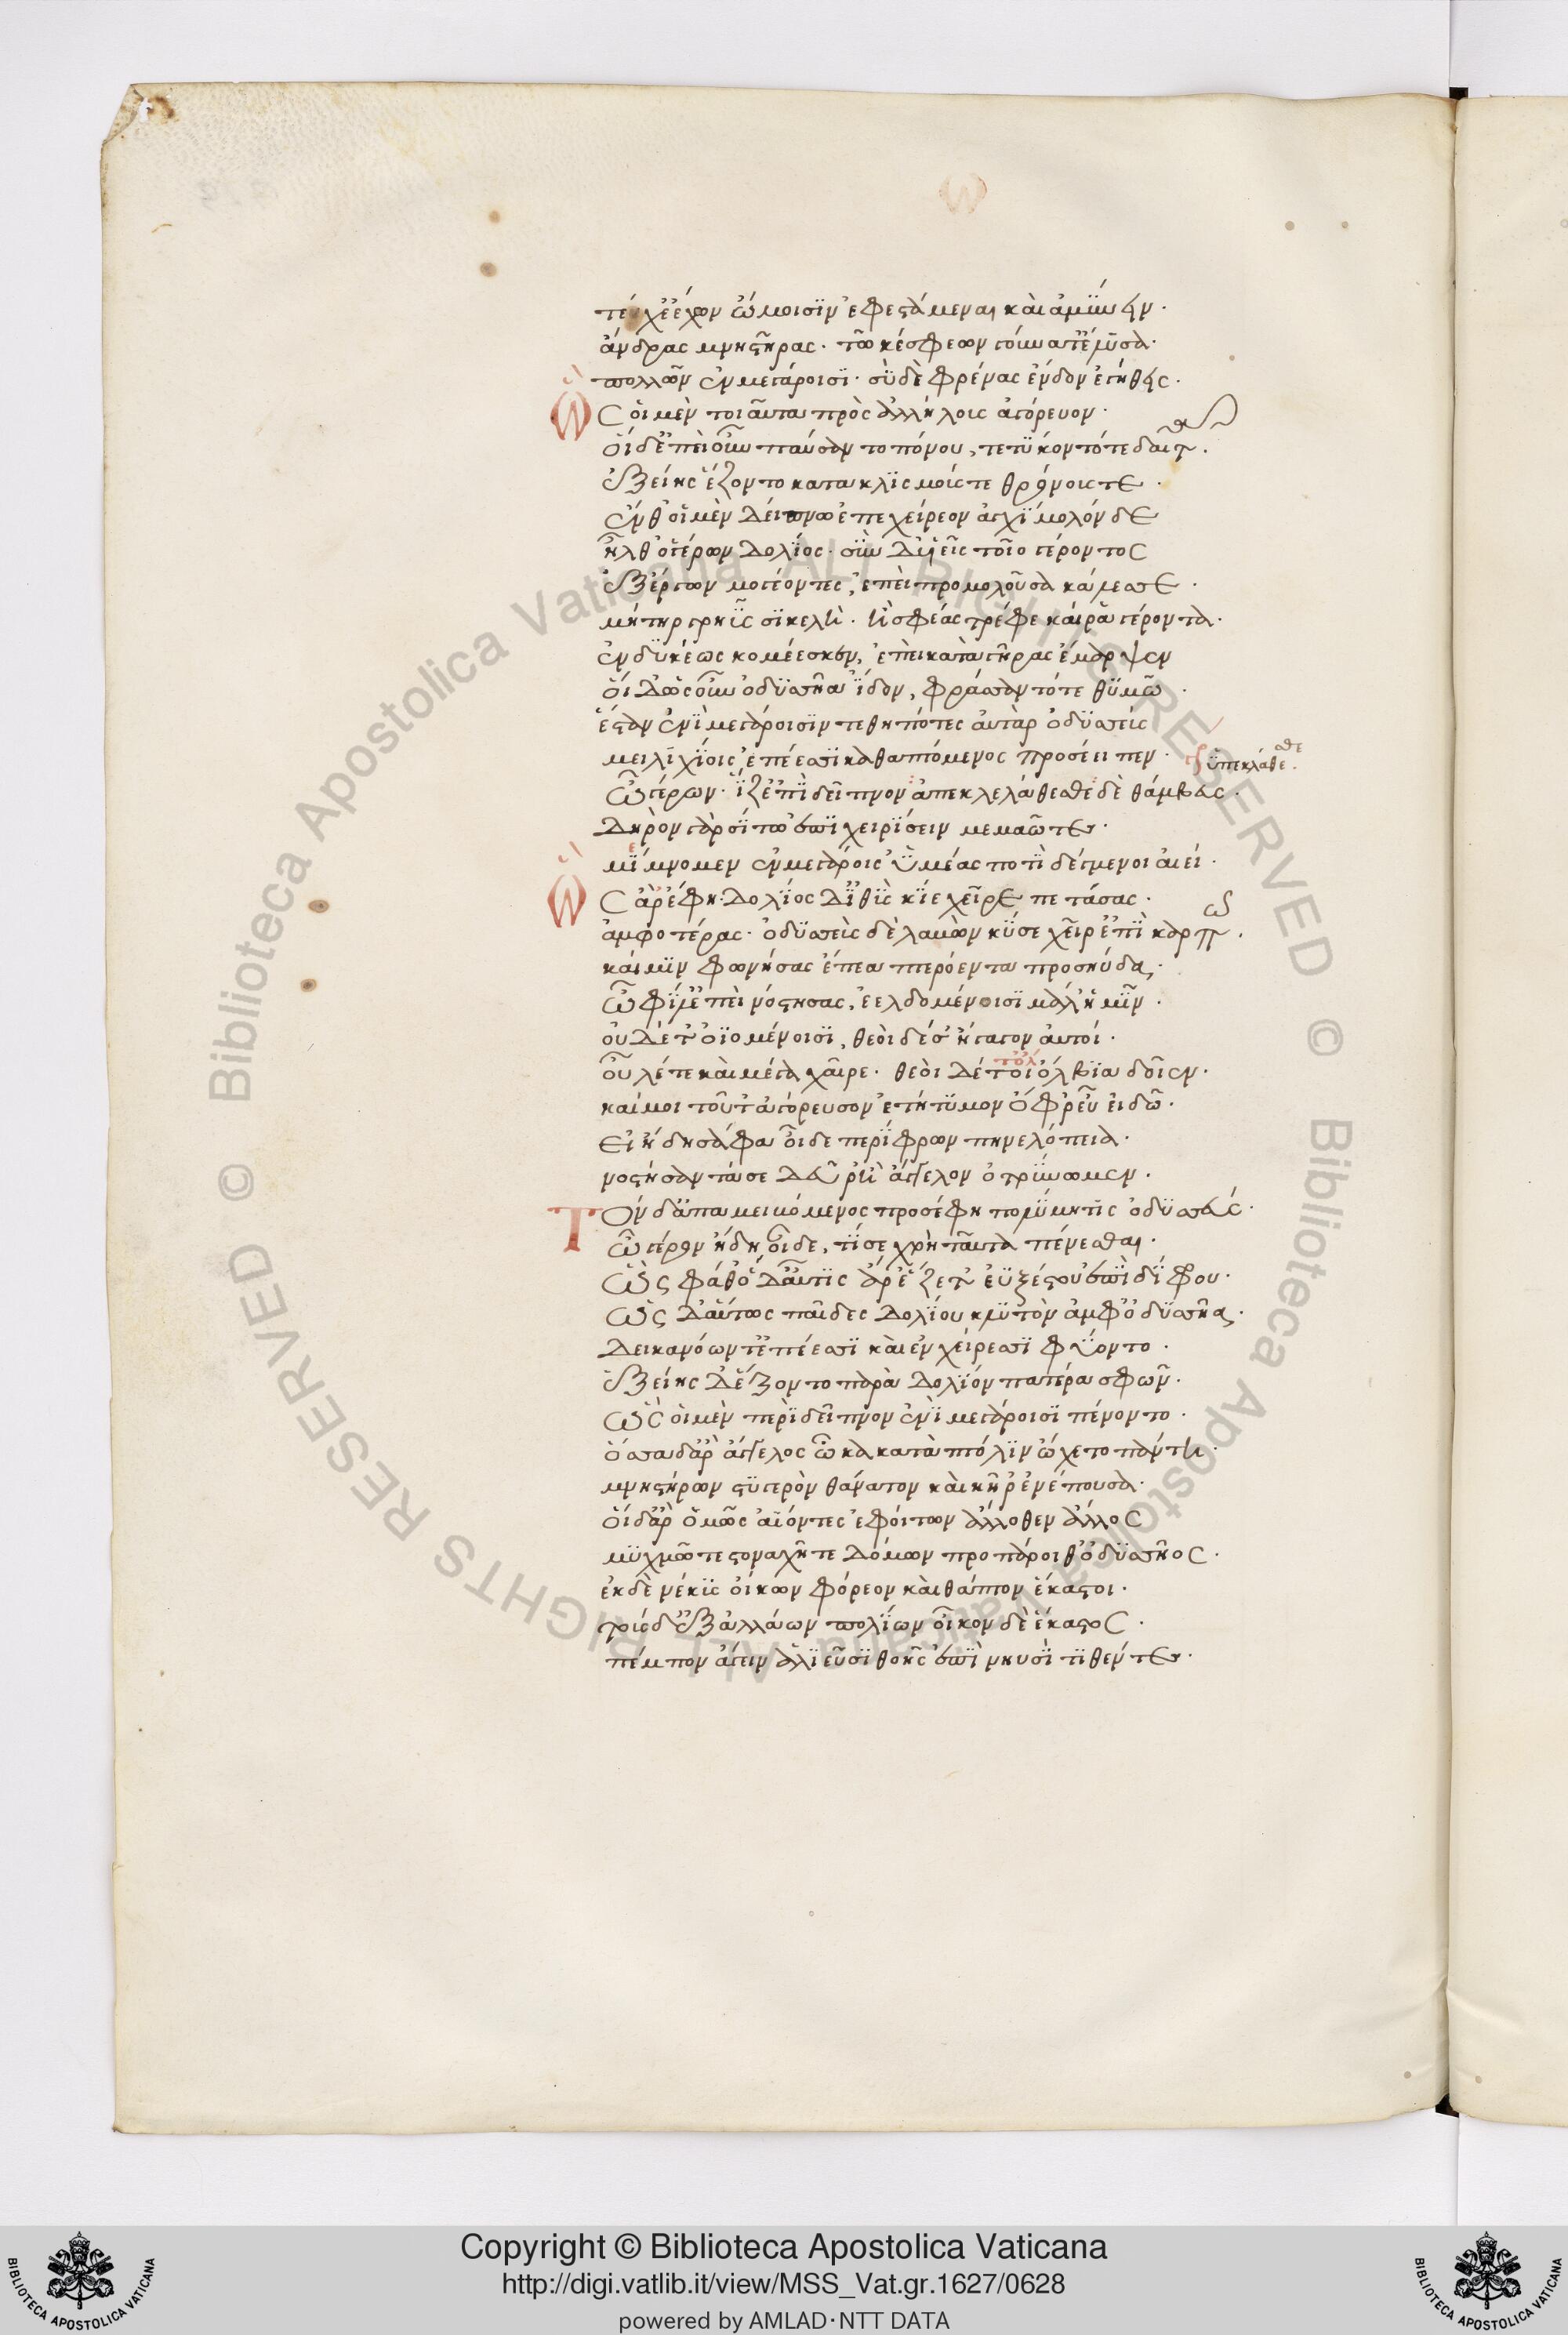 ω
τεύχε' ἔχων ὤμοισϊν ἐφεστάμεναι καὶ ἀμύνειν·
ἄνδρας μνηστῆρας· τῶ κέ σφεων γούνατ' ἔλῡσα·
πολλῶν ἐν μεγάροισϊ· σὺ δὲ φρένας ἔνδον ἐγήθεις·
Ὣς οἱ μὲν τοιαῦτα πρὸς ἀλλήλοις ἀγόρευον·
οἱ δ' ἐπεὶ οὖν παύσαντο πόνου, τετύκοντό τε δαῖτα·
ἑξείης ἕζοντο κατα κλισμοίς τε θρόνοις τε·
ἔνθ' οἱ μὲν δείπνω ἐπεχείρεον ἀγχίμολον δὲ
ἦλθ' ὁ γέρων Δολίος· σὺν δ' υἱεῖς τοῖο γέροντος
ἐξ ἔργων μογέοντες, ἐπεὶ προμολοῦσα κάλεσσε·
μήτηρ γρηῢς σϊκελὴ· ἥ σφέας τρέφε καί ρα γέροντα·
ἐνδυκέως κομέεσκεν, ἐπεὶ κατὰ γῆρας ἔμαρψεν
οἱ δ' ὡς οὖν ὀδϋσσῆα ἴδον, φράσσαντό τε θϋμῶ·
ἔσταν ἐνὶ μεγάροισϊν τεθηπότες αὐτὰρ ὀδϋσσεύς
μειλϊχίοις ἐπέεσσϊ καθαπτόμενος προσέειπεν·
γρ ὑπεκλάθεσθε·
ὦ γέρων· ἵζ' ἐπὶ δεῖπνον ἀπεκλελάθεσθε δὲ θάμβευς·
δηρὸν γὰρ σίτω ἐπϊχειρήσειν μεμαῶτες·
μίμνομεν ἐν μεγάροις ὑμέας ποτὶ δέγμενοι αἰεί·
Ὣς ἄρ' ἔφη· Δολίος δ' ἰθὺς κίε χεῖρε πετάσας·
ἀμφοτέρας· ὀδϋσσεὺς δὲ λαβὼν κύσε χεῖρ' ἐπὶ καρπῶ·
καί μϊν φωνήσας ἔπεα πτερόεντα προσηύδα·
ὦ φίλ' ἐπεὶ νόστησας, ἐελδομένοισϊ μάλ' ἡμῖν·
οὐδέ τ' ὀϊομένοισϊ, θεοὶ δέ σ' ἤγαγον αὐτοί·
οὖλέ τε καὶ μέγα χαῖρε· θεοὶ δέ τοι ὄλβϊα δοῖεν·
καί μοι τοῦτ' ἀγόρευσον ἐτήτϋμον ὄφρ' εὖ εἰδῶ·
εἰ ἤδη σάφα οἶδε περίφρων πηνελόπεια·
νοστήσαντά σε δεῦρ' ἢ ἄγγελον ὀτρύνωμεν·
Τὸν δ' ἀπαμειβόμενος προσέφη πολύμητις ὀδϋσσεύς·
ὦ γέρον ἤδη οἶδε, τί σε χρὴ ταῦτα πένεσθαι·
ὣς φάθ' ὁ δ' αὖτις ἄρ' ἕζετ' ἐϋξέστου ἐπὶ δίφρου·
ὣς δ' αὔτως παῖδες Δολίου κλυτὸν ἀμφ' ὀδϋσσῆα·
δεικανόωντ' ἐπέεσσϊ καὶ ἐν χείρεσσϊ φύοντο·
ἑξείης δ' ἕζοντο παρὰ Δολίον πατέρα σφων·
ὣς οἱ μὲν περὶ δεῖπνον ἐνὶ μεγάροισϊ πένοντο·
ὄσσα δ' ἄρ' ἄγγελος ὦκα κατὰ πτόλϊν ὤχετο πάντη·
μνηστήρων στϋγερὸν θάνατον καὶ κῆρ' ἐνέπουσα·
οἱ δ' ἄρ' ὁμῶς ἀΐόντες ἐφοίτων ἄλλοθεν ἄλλος
μϋχμῶ τε στοναχῆ τε δόμων προπάροιθ' ὀδϋσσῆος·
ἐκ δὲ νέκϋς οἴκων φόρεον καὶ θάπτον ἕκαστοι·
τοὺς δ' ἐξ ἀλλάων πολΐων οἶκον δὲ ἕκαστος·
πέμπον ἄγειν ἁλϊεῦσϊ θοῆς ἐπὶ νηυσὶ τϊθέντες·
Copyright © Biblioteca Apostolica Vaticana
http://digi.vatlib.it/view/MSS_Vat.gr.1627/0628
powered by AMLAD·NTT DATA